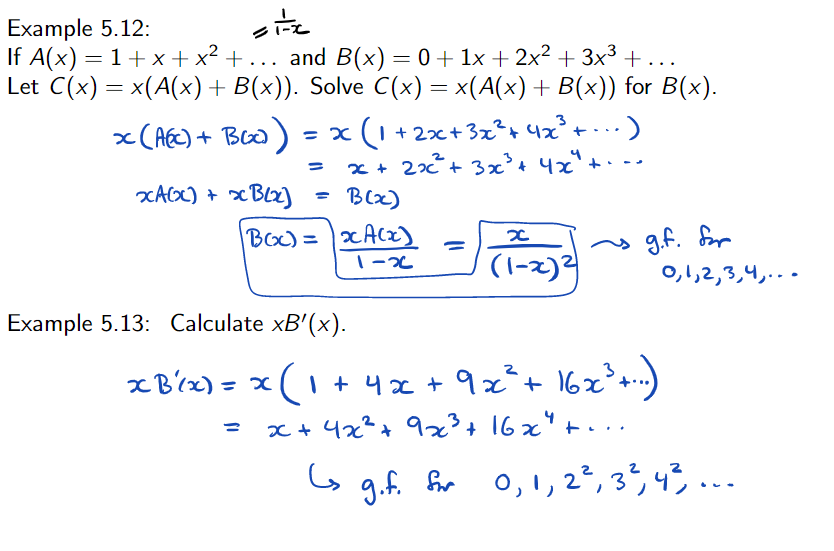 Example 5.12:
= 1/(1-x)
If A(x) = 1 + x + x² + ... and B(x) = 0 + 1x + 2x² + 3x³ + ...
Let C(x) = x(A(x) + B(x)). Solve C(x) = x(A(x) + B(x)) for B(x).
x(A(x) + B(x)) = x(1 + 2x + 3x² + 4x³ + ...)
= x + 2x² + 3x³ + 4x⁴ + ...
xA(x) + xB(x) = B(x)
B(x) = xA(x)/(1-x) = x/(1-x)² ⇝ g.f. for
0,1,2,3,4,...
Example 5.13: Calculate xB′(x).
xB′(x) = x(1 + 4x + 9x² + 16x³ + ...)
= x + 4x² + 9x³ + 16x⁴ + ...
↳ g.f. for 0, 1, 2², 3², 4², ...